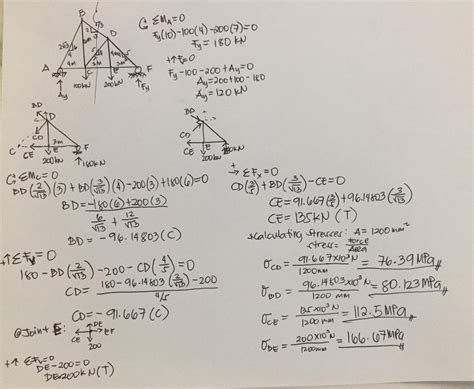 B
D
A
C
E
F
4m
3m
3m
100kN
200kN
Ay
Fy
ΣMA=0
Fy(10)-100(4)-200(7)=0
Fy=180kN
+↑ΣF=0
Fy-100-200+Ay=0
Ay=200+100-180
Ay=120kN
BD
D
CD
C
CE
3m
E
F
200kN
180kN
BD
CD
CE
F
200kN
ΣMC=0
BD(2/√13)(3)+BD(3/√13)(4)-200(3)+180(6)=0
BD=-180(6)+200(3)
6/√13 + 12/√13
BD=-96.14803(C)
+↑ΣFy=0
180-BD(2/√13)-200-CD(4/5)=0
CD=180-96.14803(2/√13)-200
4/5
CD=-91.667(C)
@Joint E:
DE
CE
EF
200
+↑ΣFv=0
DE-200=0
DE=200kN(T)
ΣFx=0
CD(3/5)+BD(3/√13)-CE=0
CE=91.667(3/5)+96.14803(3/√13)
CE=135kN(T)
calculating stresses: A=1200mm²
stress=force/Area
σCD=91.667×10³N/1200mm=76.39MPa
σBD=96.14803×10³N/1200mm=80.123MPa
σCE=135×10³N/1200mm=112.5MPa
σDE=200×10³N/1200mm=166.67MPa